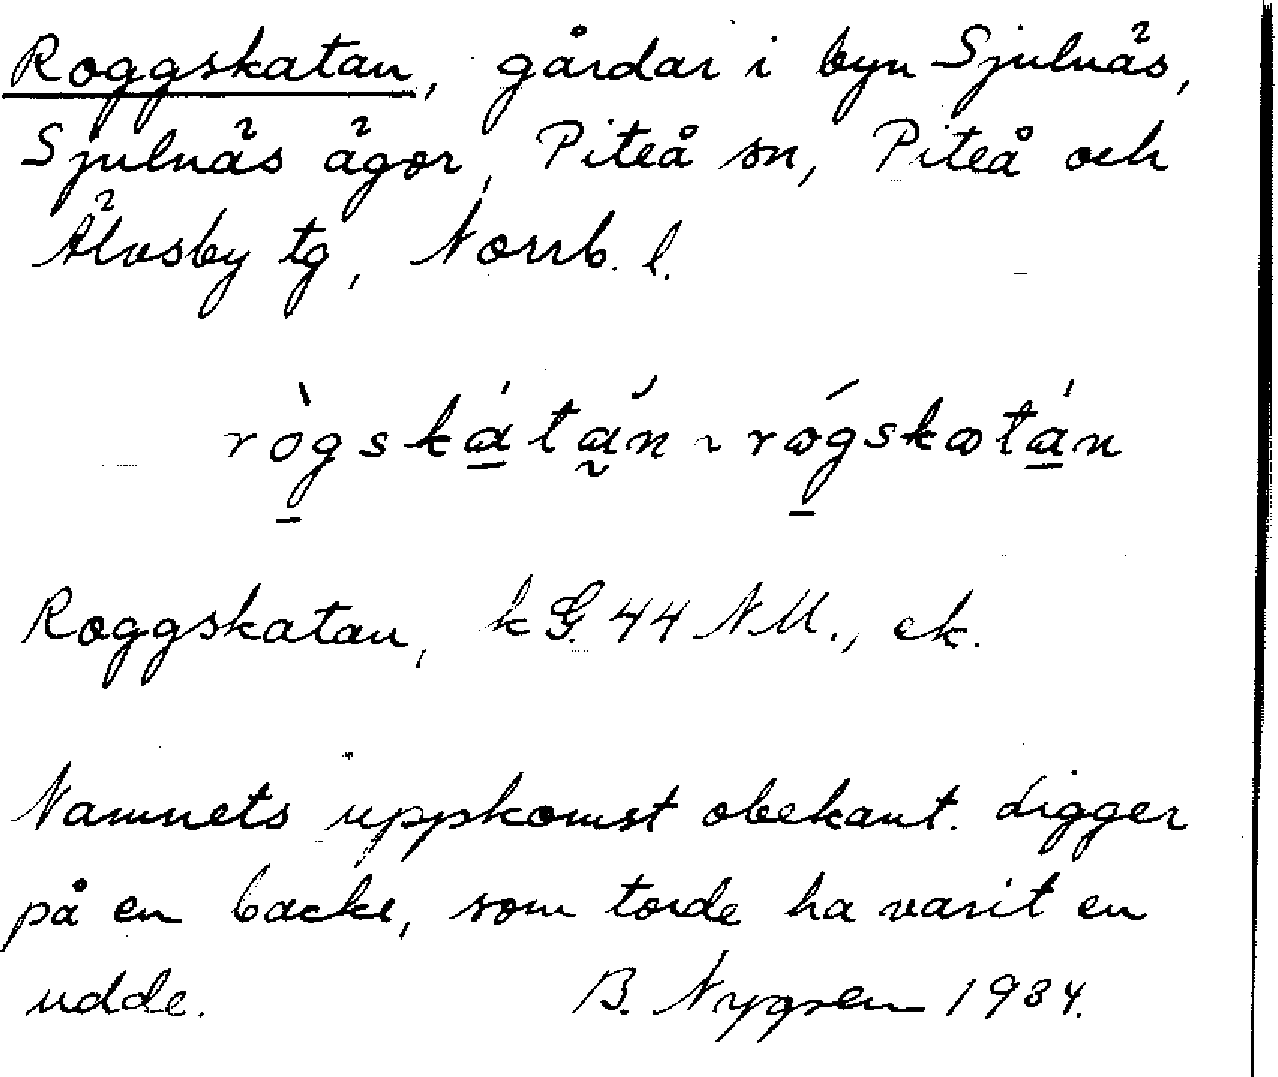 Roggskatan, gårdar i byn Sjulnäs,
Sjulnäs ägor, Piteå sn, Piteå och
Älvsby tg, Norrb. l.
rògskátán ~ rógskatán
Roggskatan, k G. 44 NM., ek.
Namnets uppkomst obekant. Ligger
på en backe, som torde ha varit en
udde. B. Nygren 1934.